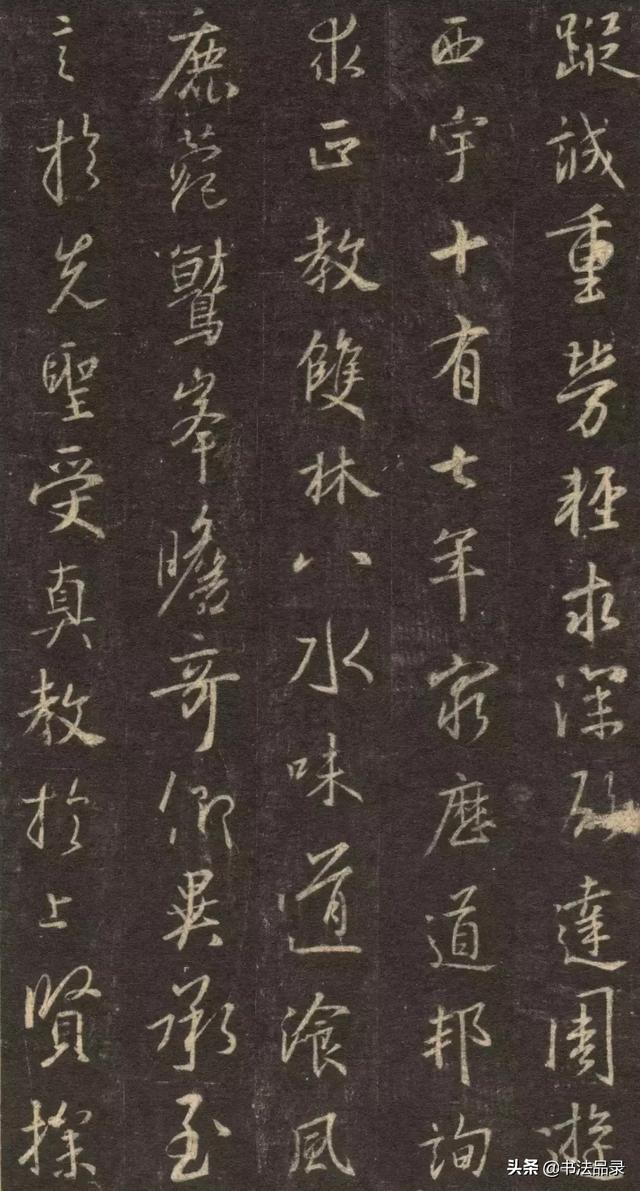 蹤誠重勞輕求深願達周遊
西宇十有七年窮歷道邦詢
求正教雙林八水味道飡風
鹿菀鷲峯瞻奇仰異承至
言於先聖受真教於上賢探
头条 @书法品录